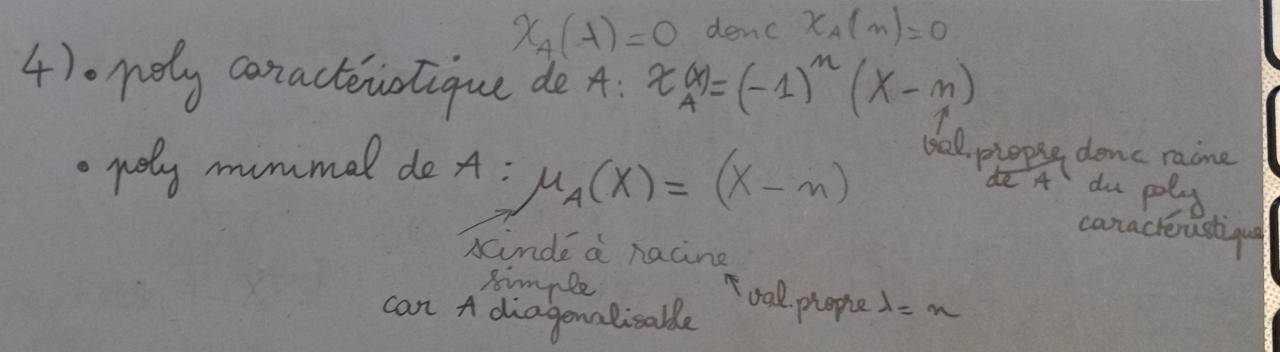 χ_A(λ)=0 donc χ_A(n)=0
4) • poly caractéristique de A : χ_A(X)=(-1)^n (X-n)
↑
val. propre de A donc racine
du poly
caractéristique
• poly minimal de A : μ_A(X) = (X-n)
scindé à racine
simple
car A diagonalisable
val. propre λ = n